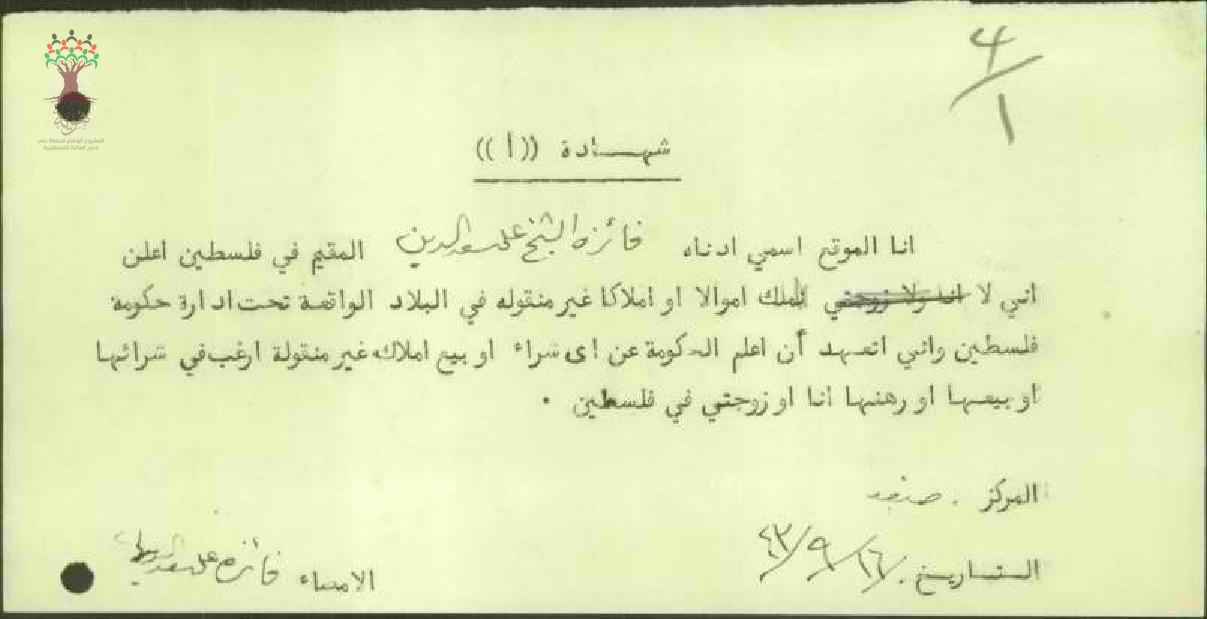 ٤/١
المشروع الوطني للحفاظ على
جذور العائلة الفلسطينية
شهادة ((أ))
انا الموقع اسمي ادناه فائزه الشيخ علي سعد الدين المقيم في فلسطين اعلن
اني لا انا ولا زوجتي املك اموالا او املاكا غير منقوله في البلاد الواقعة تحت ادارة حكومة
فلسطين واني اتعهد أن اعلم الحكومة عن اى شراء او بيع املاك غير منقولة ارغب في شرائها
او بيعها او رهنها انا او زوجتي في فلسطين .
المركز . صفد
التاريخ . ١٦/٩/٤٣
الامضاء فائزه علي سعد الدين